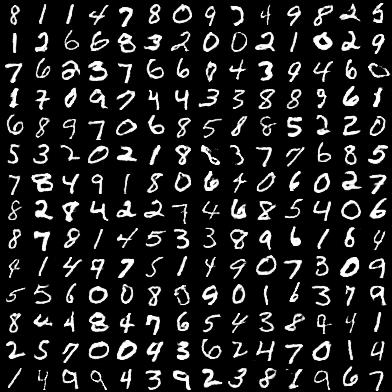 8 1 1 4 7 8 0 9 3 4 9 8 2 5
1 2 6 6 8 3 2 0 0 2 1 0 2 9
7 6 2 3 7 6 6 8 4 3 9 4 6 0
1 7 0 9 7 4 4 3 3 8 8 9 6 1
6 8 9 7 0 6 8 5 8 8 5 2 2 0
5 3 2 0 2 1 8 8 3 7 7 6 8 5
7 8 4 9 1 8 0 6 4 0 6 0 2 7
8 2 8 4 2 2 7 4 6 8 5 4 0 6
8 7 8 1 4 5 3 3 8 9 6 1 6 4
4 1 4 9 7 5 1 4 9 0 7 3 0 9
5 5 6 0 0 8 0 9 0 1 6 3 7 9
8 4 8 4 7 6 5 4 3 8 9 4 1
2 5 7 0 0 4 3 6 2 4 7 0 1 4
1 4 9 9 4 3 9 2 3 8 1 9 6 7